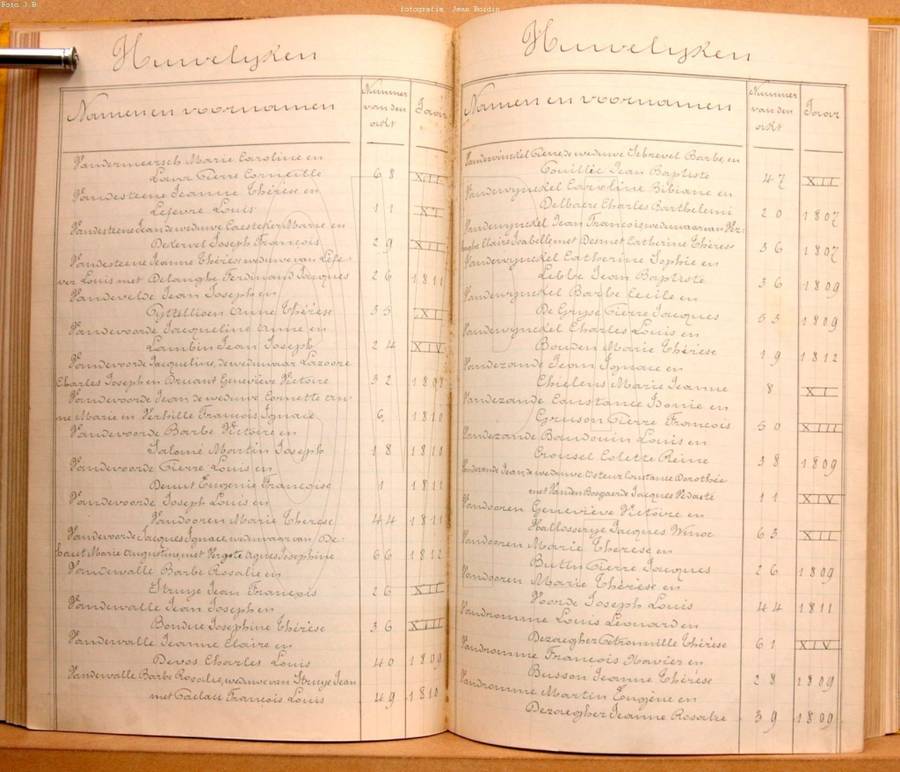 Foto J.B
fotografie Jean Bordin
Huwelyken
Namen en voornamen
Nummer van den akt
Jaar
Vandermeersch Marie Caroline en
Lava Pierre Corneille 68 XIII
Vandesteene Jeanne Thérèse en
Lefevre Louis 11 XI
Vandesteene Jean de weduwe Caesteker Marie en
Dekervel Joseph François 29 XIII
Vandesteene Jeanne Thérèse weduwe van Lefe-
ver Louis met Delanghe Ferdinand Jacques 26 1811
Vandevelde Jean Joseph en
Gyttellioen Anne Thérèse 35 XI
Vandevoorde Jacqueline Anne en
Lambin Jean Joseph 24 XIV
Vandevoorde Jacqueline, de weduwaar Lazoore
Charles Joseph en Bruant Geneviève Victoire 32 1808
Vandevoorde Jean de weduwe Cornette An-
ne Marie en Verhille François Ignace 6 1810
Vandevoorde Barbe Victoire en
Salomé Martin Joseph 18 1811
Vandevoorde Pierre Louis en
Denut Eugenie Françoise 1 1811
Vandevoorde Joseph Louis en
Vandooren Marie Thérèse 44 1811
Vandevoorde Jacques Ignace weduwaar van De-
haut Marie Augustine met Vergote Agnes Josephine 66 1812
Vandewalle Barbe Rosalie en
Struye Jean François 26 XII
Vandewalle Jean Joseph en
Bondue Josephine Thérèse 36 XIII
Vandewalle Jeanne Claire en
Devos Charles Louis 40 1809
Vandewalle Barbe Rosalie, weduwe van Struye Jean
met Caelau François Louis 49 1810
Huwelyken
Namen en voornamen
Nummer van den akt
Jaar
Vandewinckel Pierre de weduwe Barbe en
Jean Baptiste 47 XII
Vandewynckel Caroline Bibiane en
Delbaere Charles Barthelemi 20 1807
Vandewynckel Jean François weduwaar van Ver-
Claire Isabelle met Desmet Catherine Thérèse 36 1807
Vandewynckel Catherine Sophie en
Lebbe Jean Baptiste 36 1809
Vandewynckel Barbe Cecile en
De Gryse Pierre Jacques 53 1809
Vandewynckel Charles Louis en
Bouden Marie Thérèse 19 1812
Vandezande Jean Ignace en
Chielens Marie Jeanne 8 XI
Vandezande Constance Isonie en
Gruson Pierre François 50 XIII
Vandezande Baudouin Louis en
Crousel Colette Reine 38 1809
Vandezande Jean de weduwe Constance Dorothée
met Vanden Bogaerde Jacques Vedaste 11 XIV
Vandooren Geneviève Victoire en
Hallosserye Jacques Winoc 63 XII
Vandooren Marie Thérèse en
Buttin Pierre Jacques 26 1809
Vandooren Marie Thérèse en
Voorde Joseph Louis 44 1811
Vandromme Louis Leonard en
Dezaegher Petronille Thérèse 61 XIV
Vandromme François Xavier en
Busson Jeanne Thérèse 28 1809
Vandromme Martin Eugène en
Dezaegher Jeanne Rosalie 39 1809